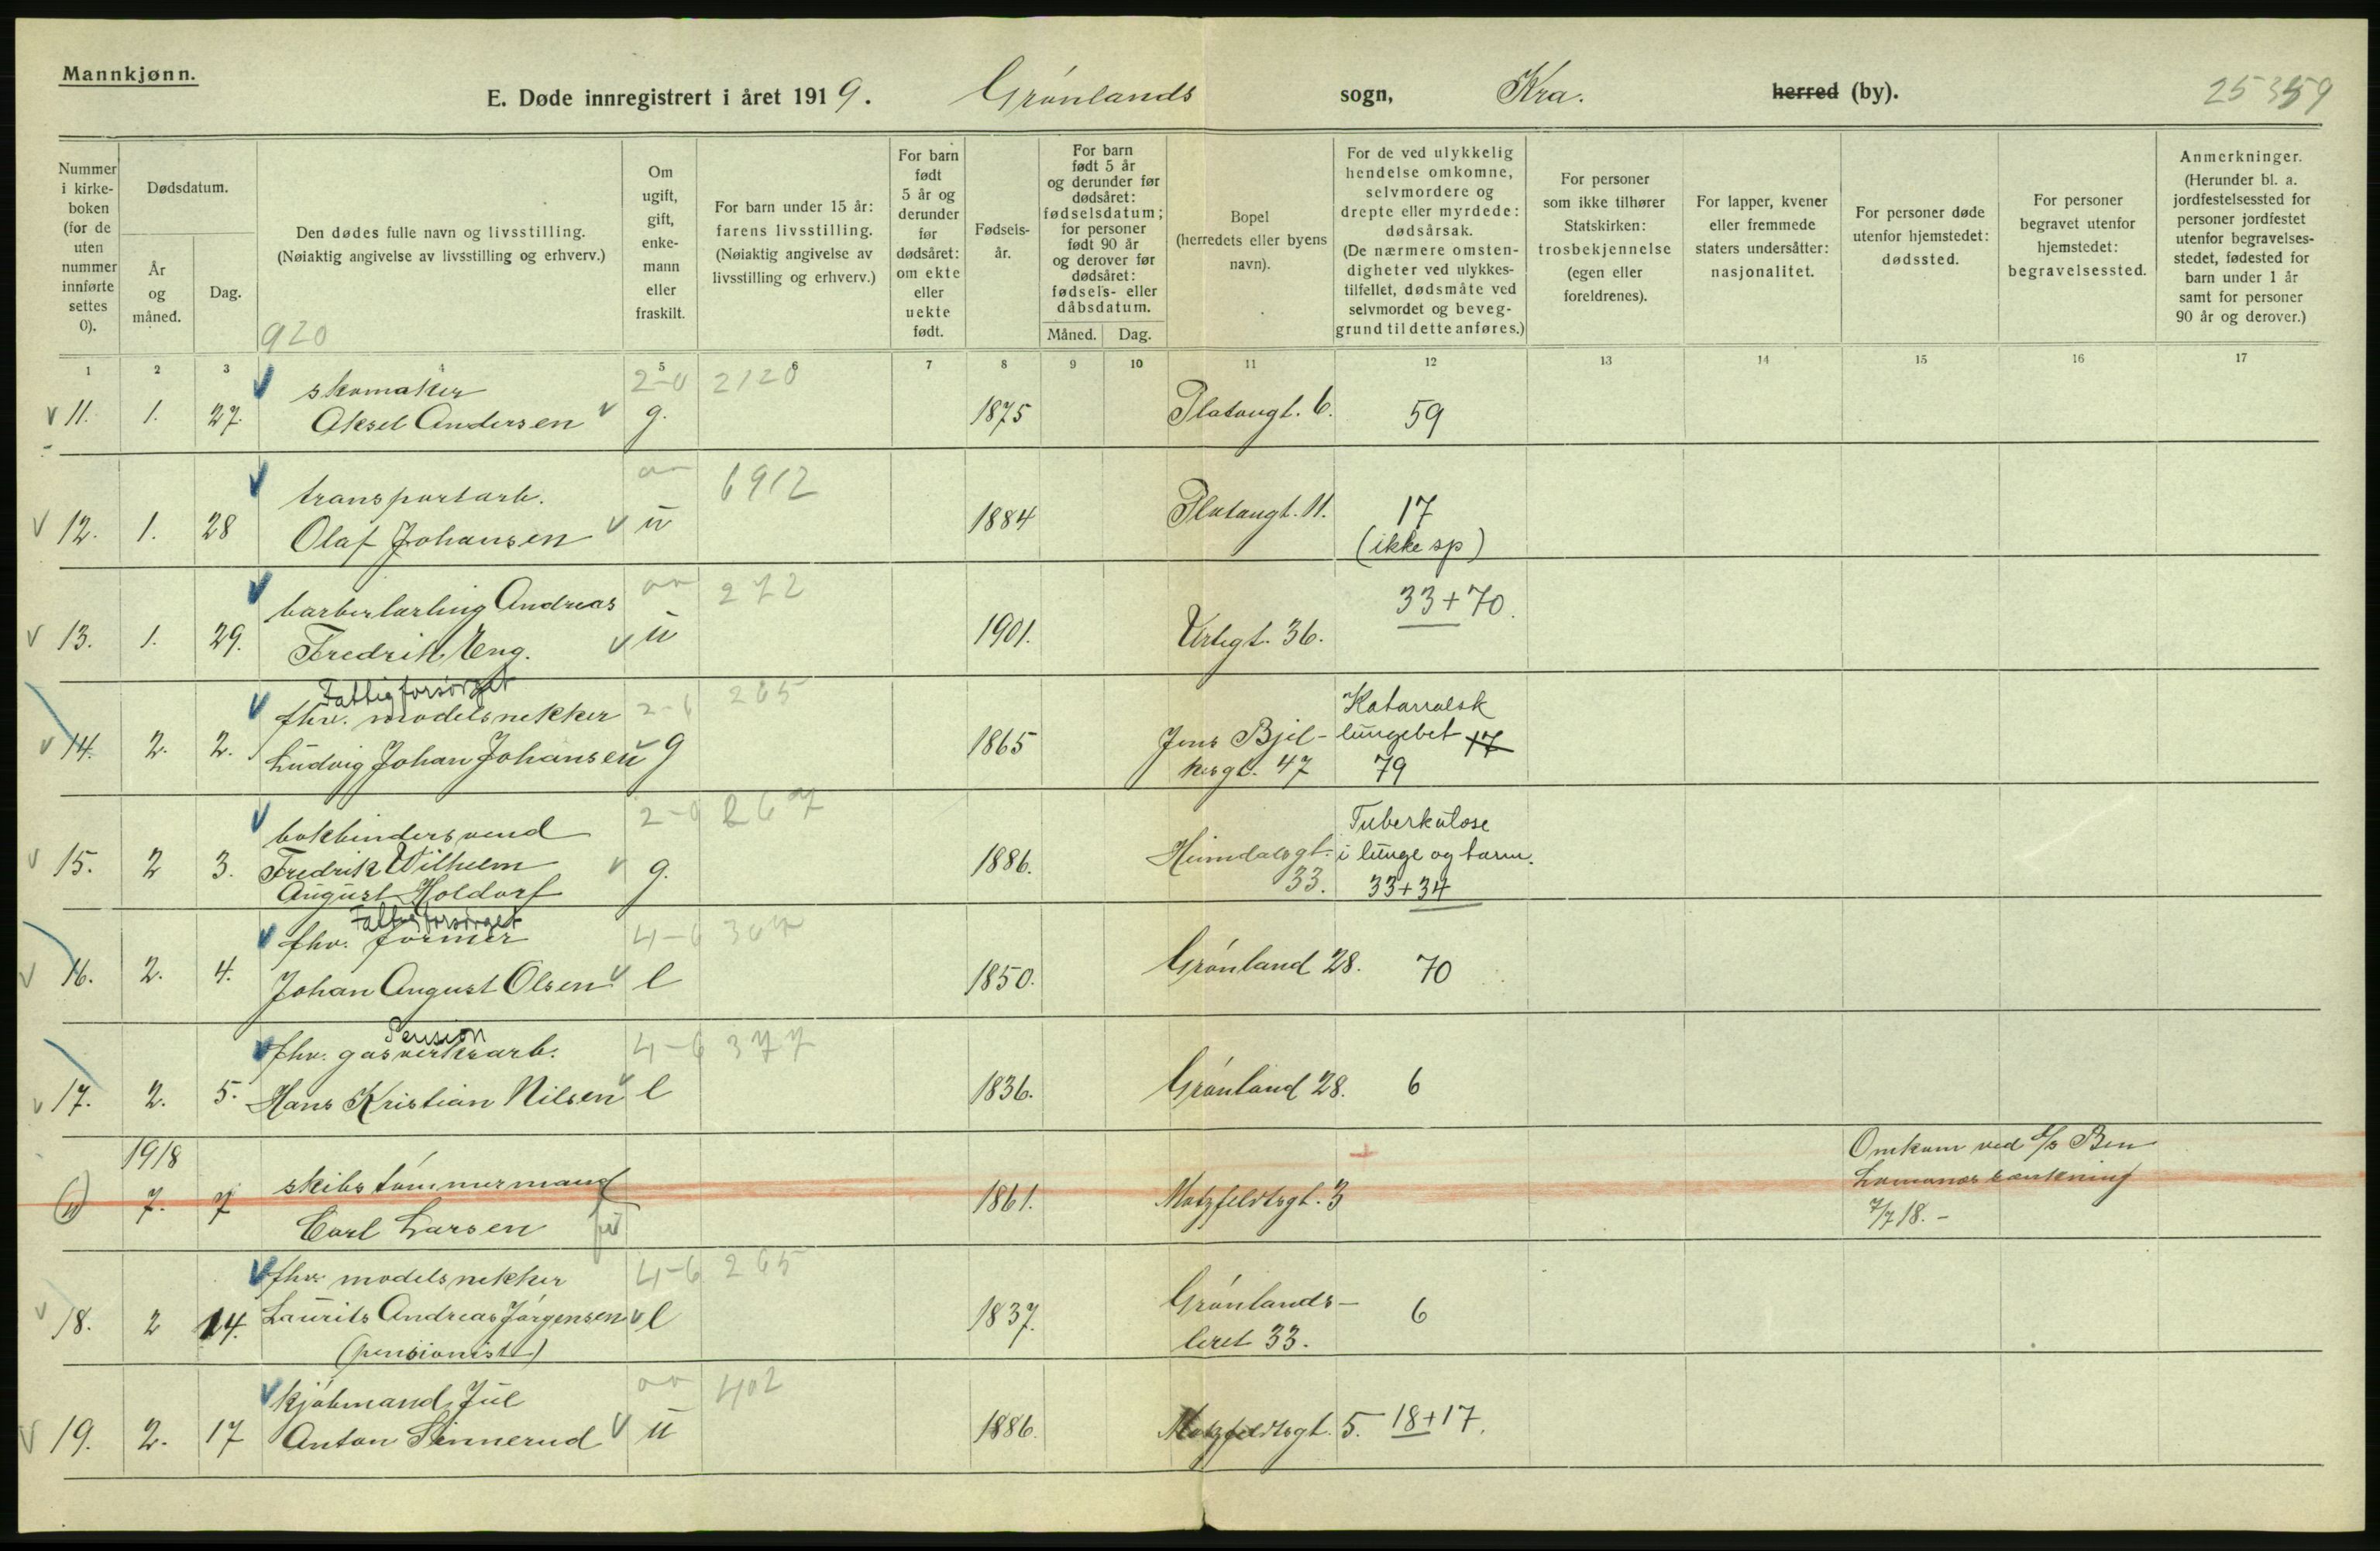 Mannkjønn.
E. Døde innregistrert i året 1919. Grønlands sogn, Kra. herred (by).
Nummer i kirke- boken (for de uten nummer innførte settes 0).
Dødsdatum.
År og måned.
Dag.
Den dødes fulle navn og livsstilling.
(Nøiaktig angivelse av livsstilling og erhverv.)
920
Om ugift, gift, enke- mann eller fraskilt.
For barn under 15 år: farens livsstilling. (Nøiaktig angivelse av livsstilling og erhverv.)
For barn født 5 år og derunder før dødsåret: om ekte eller uekte født.
Fødsels- år.
For barn født 5 år og derunder før dødsåret: fødselsdatum; for personer født 90 år og derover før dødsåret: fødsels- eller dåbsdatum.
Måned. Dag.
Bopel (herredets eller byens navn).
For de ved ulykkelig hendelse omkomne, selvmordere og drepte eller myrdede: dødsårsak. (De nærmere omsten- digheter ved ulykkes- tilfellet, dødsmåte ved selvmordet og beveg- grund til dette anføres.)
For personer som ikke tilhører Statskirken: trosbekjennelse (egen eller foreldrenes).
For lapper, kvener eller fremmede staters undersåtter: nasjonalitet.
For personer døde utenfor hjemstedet: dødssted.
For personer begravet utenfor hjemstedet: begravelsessted.
Anmerkninger. (Herunder bl. a. jordfestelsessted for personer jordfestet utenfor begravelses- stedet, fødested for barn under 1 år samt for personer 90 år og derover.)
1 2 3 4 5 6 7 8 9 10 11 12 13 14 15 16 17
skomaker 2-0 2120
11. 1. 27. Aksel Andersen g. 1875 Platougt. 6. 59
transportarb. 6912
12. 1. 28 Olaf Johansen u 1884 Platougt. 11. 17
(ikke sp)
barberlærling Andreas 272 33+70.
13. 1. 29. Fredrik Eng. u 1901. Urtegt. 36.
Fattigforsørget
fhv. modelsnekker 2-6 265 Katarralsk
14. 2. 2. Ludvig Johan Johansen g 1865 Jens Bjel- lungebet 17
kesgt. 47 79
bokbindersvend 2-0 267 Tuberkulose
15. 2 3. Fredrik Wilhelm g. 1886. Heimdalsgt. i lunge og tarm.
August Holdorf 33. 33+34
Fattigforsørget
fhv. former 4-6 307
16. 2. 4. Johan August Olsen l 1850. Grønland 28. 70
Pension
fhv. gasverksarb. 4-6 377
17. 2. 5. Hans Kristian Nilsen l 1836. Grønland 28. 6
1918 Omkom ved d/s Ben
skibstømmermand Lomonds sænkning
7. 7 Carl Larsen 1861. Motzfeldtsgt. 3 7/7 18. -
fhv. modelsnekker 4-6 265
18. 2 14. Laurits Andreas Jørgensen l 1837. Grønlands- 6
(pensionist) leret 33.
kjøbmand Jul 402
19. 2. 17 Anton Sinnerud u 1886. Motzfeldtsgt. 5. 18+17.